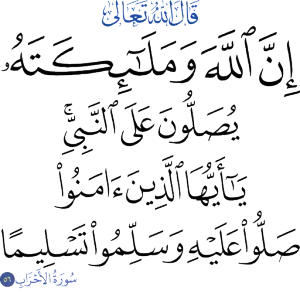 قَالَ اللهُ تَعَالَى
إِنَّ ٱللَّهَ وَمَلَـٰٓئِكَتَهُۥ
يُصَلُّونَ عَلَى ٱلنَّبِيِّۚ
يَـٰٓأَيُّهَا ٱلَّذِينَ ءَامَنُوا۟
صَلُّوا۟ عَلَيْهِ وَسَلِّمُوا۟ تَسْلِيمًا
سُورَةُ الأَحْزَابِ ٥٦